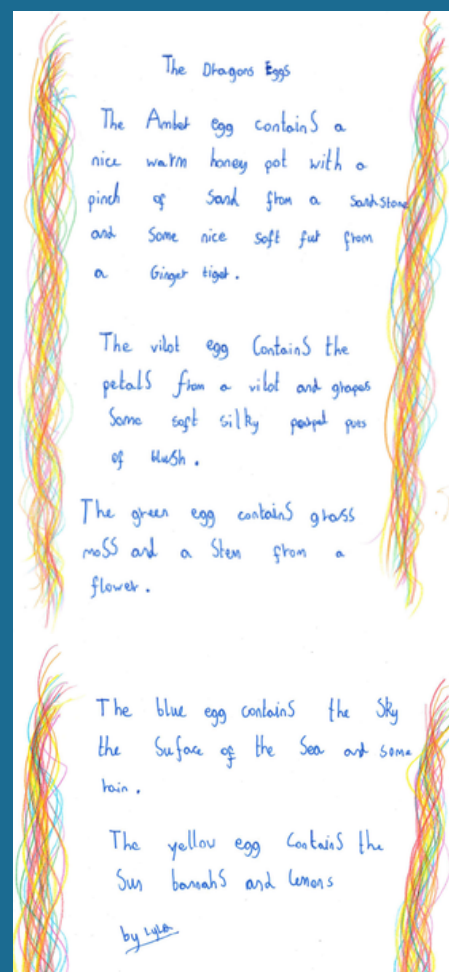 The Dragons Eggs
The Amber egg contains a
nice warm honey pot with a
pinch of sand from a sandstone
and some nice soft fur from
a Ginger tiger.
The vilot egg Contains the
petals from a vilot and grapes
Some soft silky peurpel pues
of blush.
The green egg contains grass
moss and a Stem from a
flower.
The blue egg contains the Sky
the Surface of the Sea and some
rain.
The yellow egg Contains the
Sun bannahs and lemons
by Lyla